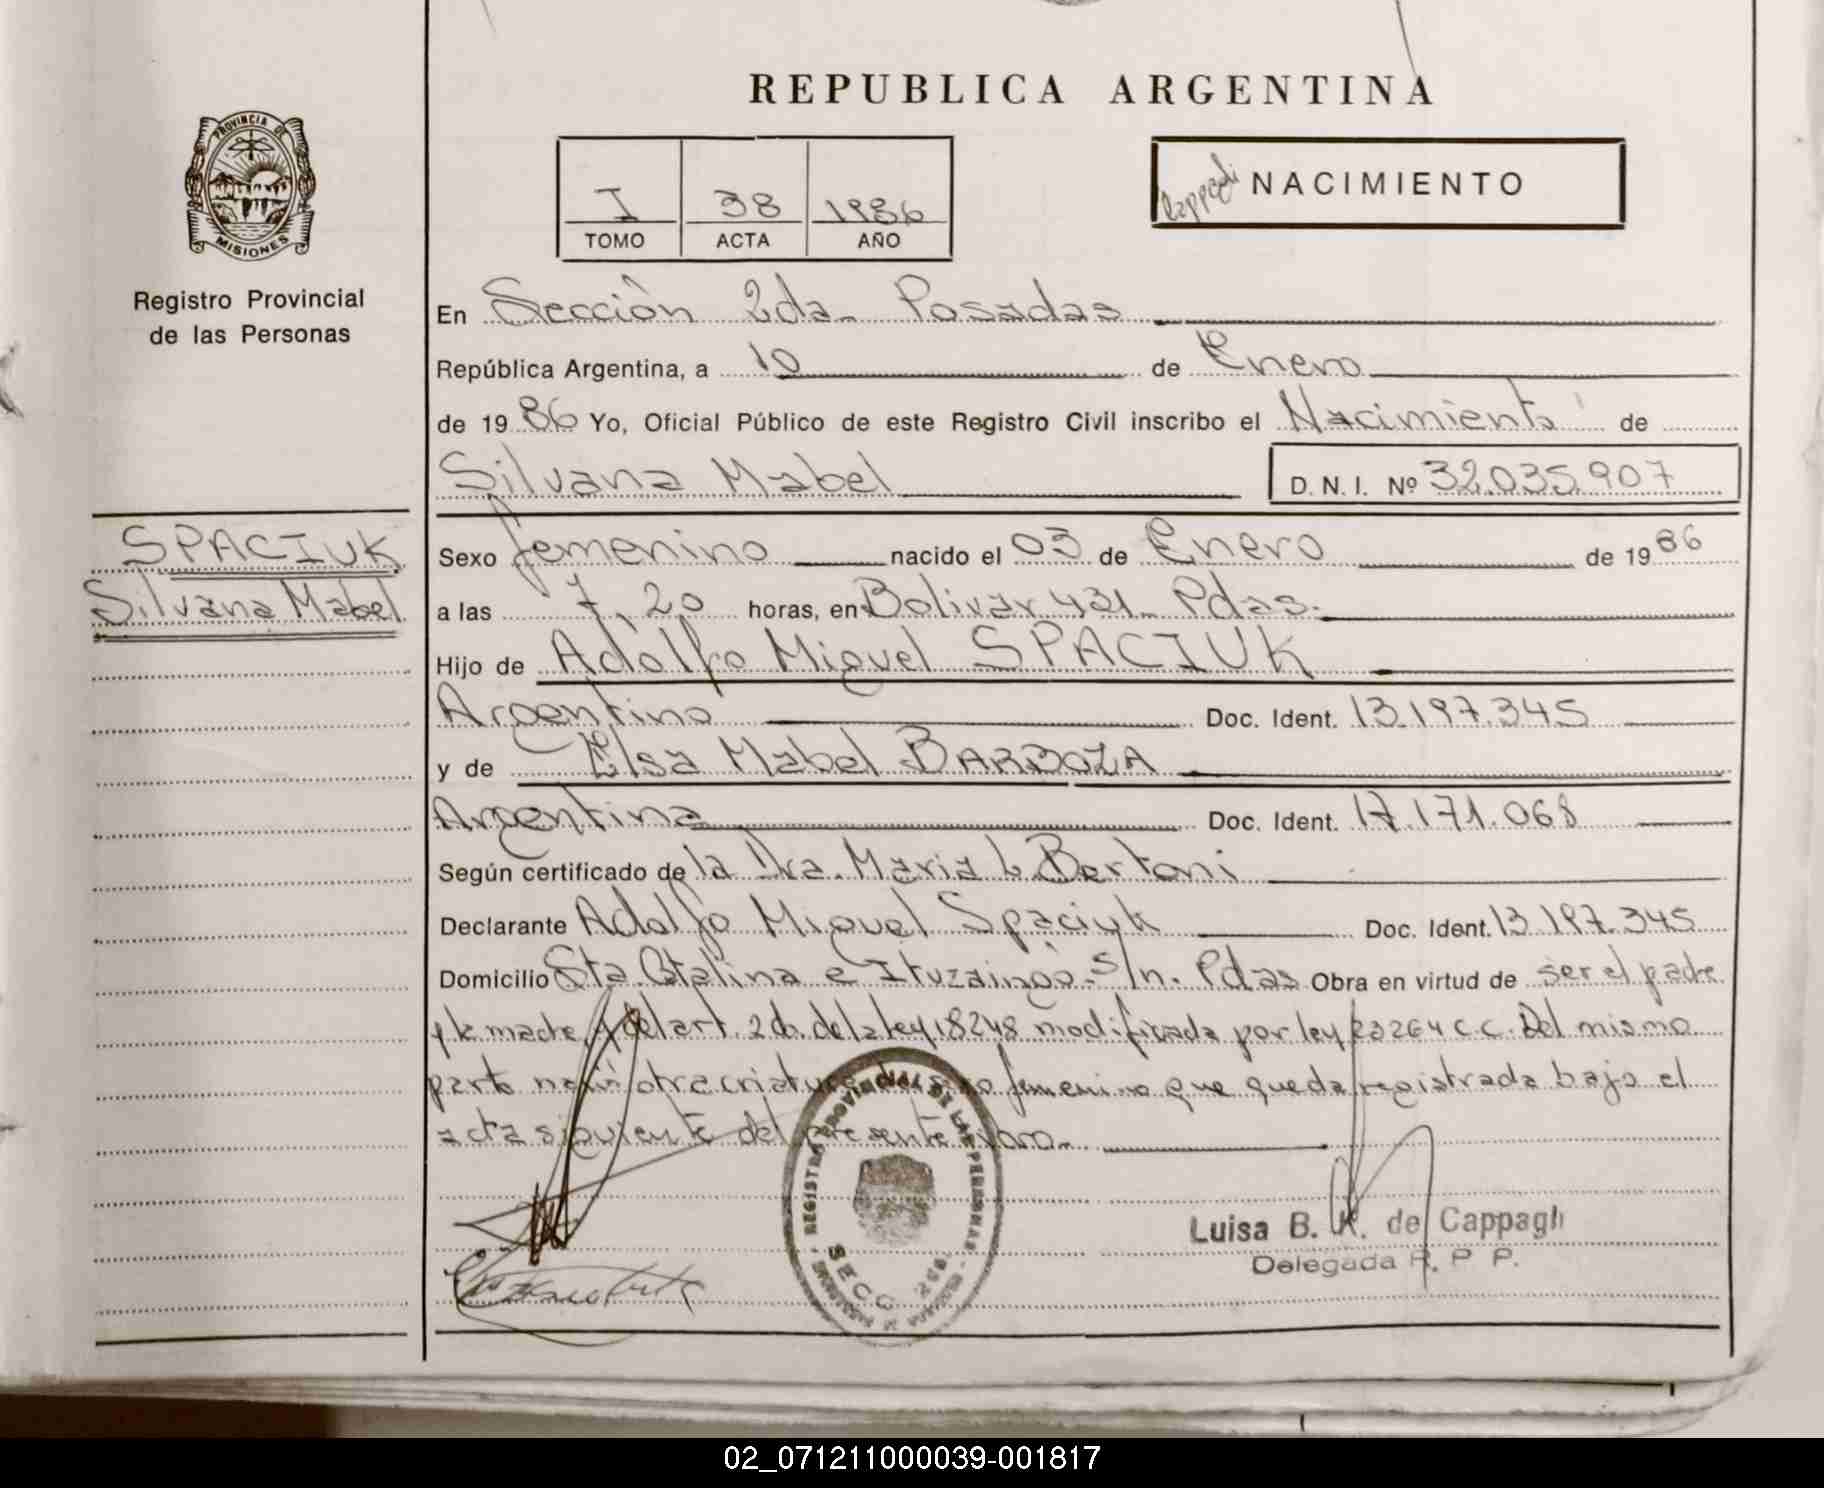 REPUBLICA ARGENTINA
PROVINCIA DE
MISIONES
Registro Provincial
de las Personas
I 38 1986
TOMO ACTA AÑO
NACIMIENTO
En Sección 2da. Posadas
República Argentina, a 10 de Enero
de 1986 Yo, Oficial Público de este Registro Civil inscribo el Nacimiento de
Silvana Mabel D. N. I. Nº 32.035.907
SPACIUK
Silvana Mabel
Sexo femenino nacido el 03 de Enero de 1986
a las 7,20 horas, en Bolivar 431- Pdas.
Hijo de Adolfo Miguel SPACIUK
Argentino Doc. Ident. 13.197.345
y de Elsa Mabel BARBOZA
Argentina Doc. Ident. 17.171.068
Según certificado de la Dra. Maria L Bertoni
Declarante Adolfo Miguel Spaciuk Doc. Ident. 13.197.345
Domicilio Sta. Catalina e Ituzaingo- S/n. Pdas Obra en virtud de ser el padre
y la madre y del art. 2do. de la ley 18248 modificada por ley 23264 C.C. Del mismo
parto nació otra criatura de sexo femenino que queda registrada bajo el
acta siguiente del presente libro-
REGISTRO PROVINCIAL DE LAS PERSONAS
SECC. 2da.
Luisa B. K. de Cappagli
Delegada R. P. P.
02_071211000039-001817